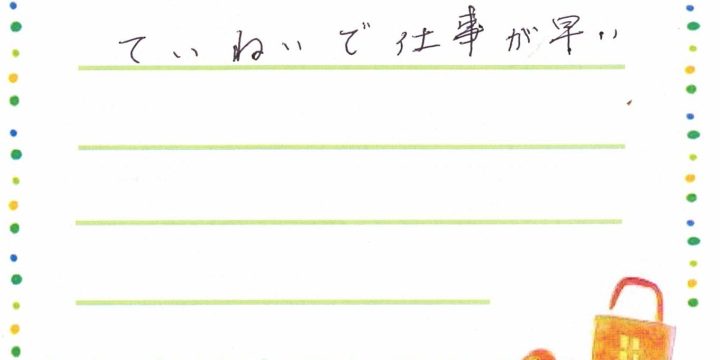 ていねいで仕事が早い